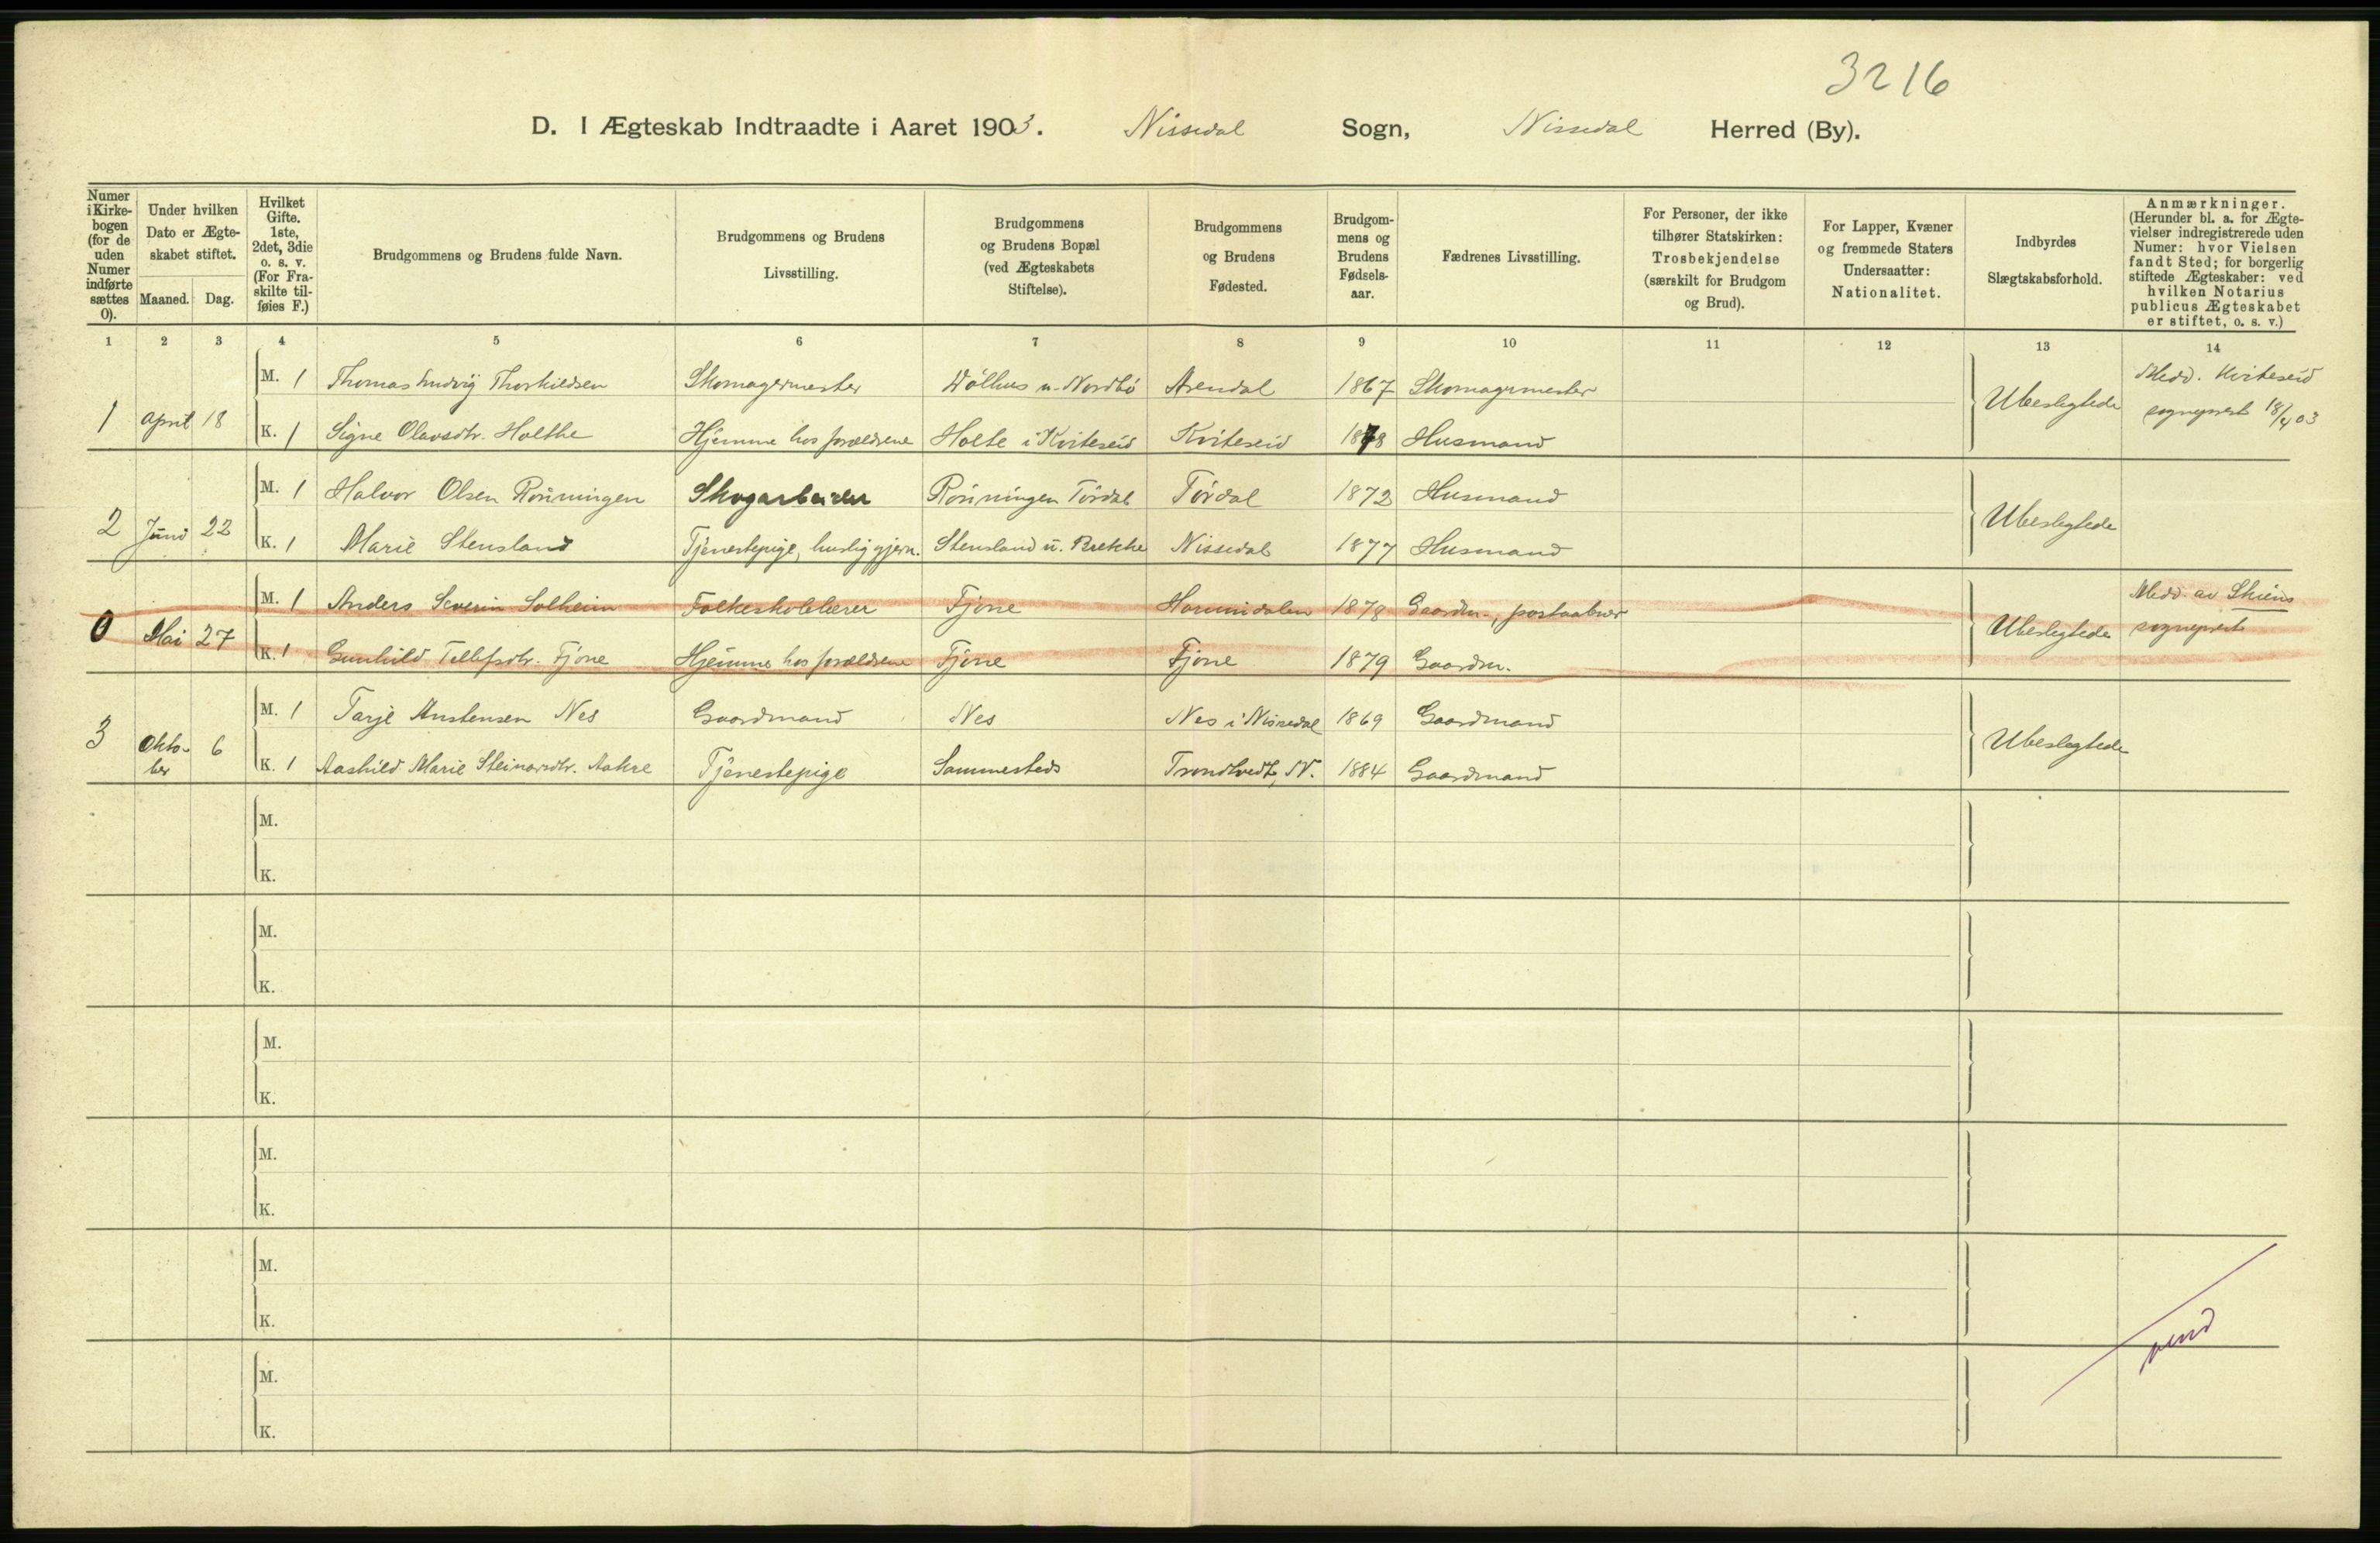 3216
D. I Ægteskab Indtraadte i Aaret 1903. Nissedal Sogn, Nissedal Herred (By).
Numer i Kirkebogen (for de uden Numer indførte sættes 0).
Under hvilken Dato er Ægteskabet stiftet.
Maaned. Dag.
Hvilket Gifte. 1ste, 2det, 3die o. s. v. (For Fraskilte tilføies F.)
Brudgommens og Brudens fulde Navn.
Brudgommens og Brudens Livsstilling.
Brudgommens og Brudens Bopæl (ved Ægteskabets Stiftelse).
Brudgommens og Brudens Fødested.
Brudgommens og Brudens Fødselsaar.
Fædrenes Livsstilling.
For Personer, der ikke tilhører Statskirken: Trosbekjendelse (særskilt for Brudgom og Brud).
For Lapper, Kvæner og fremmede Staters Undersaatter: Nationalitet.
Indbyrdes Slægtskabsforhold.
Anmærkninger. (Herunder bl. a. for Ægtevielser indregistrerede uden Numer: hvor Vielsen fandt Sted; for borgerlig stiftede Ægteskaber: ved hvilken Notarius publicus Ægteskabet er stiftet, o. s. v.)
1 2 3 4 5 6 7 8 9 10 11 12 13 14
M. 1 Thomas Ludvig Thorkildsen Skomagermester Dølhus u. Nordbø Arendal 1867 Skomagermester
1 April 18 K. 1 Signe Olavsdtr. Holthe Hjemme hos forældrene Holte i Kviteseid Kviteseid 1878 Husmand Ubeslegtede Medd. Kviteseid sogneprest 18/4 03
M. 1 Halvor Olsen Rönningen Skogarbeider Rönningen Tördal Tördal 1872 Husmand
2 Juni 22 K. 1 Marie Stensland Tjenestepige, huslig gjern. Stensland u. Brekke Nissedal 1877 Husmand Ubeslegtede
M. 1 Anders Severin Solheim Folkeskolelærer Fjone Hornindalen 1878 Gaardm., postaabner
0 Mai 27 K. 1 Gunhild Tellefsdtr. Fjone Hjemme hos forældrene Fjone Fjone 1879 Gaardm. Ubeslegtede Medd. av Skiens sogneprest
M. 1 Tarje Austensen Nes Gaardmand Nes Nes i Nissedal 1869 Gaardmand
3 Oktober 6 K. 1 Aashild Marie Steinarsdtr. Aakre Tjenestepige Sammesteds Trondtvedt, N. 1884 Gaardmand Ubeslegtede
M.
K.
M.
K.
M.
K.
M.
K.
M.
K.
M.
K.